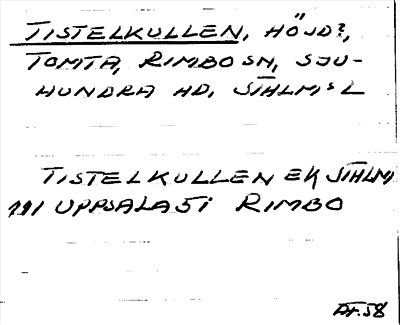 TISTELKULLEN, HÖJD?,
TOMTA, RIMBO SN, SJU-
HUNDRA HD, STHLMS L
TISTELKULLEN EK STHLM
111 UPPSALA 5i RIMBO
DT.58